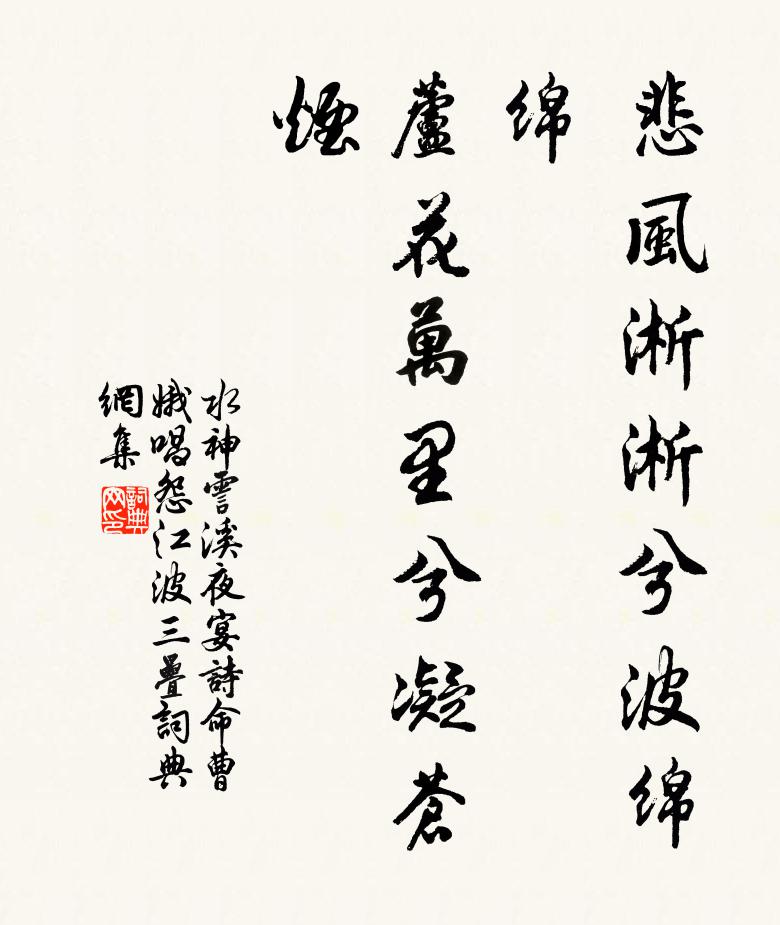 悲風淅淅兮波綿
綿
蘆花萬里兮凝蒼
煙
水神霅溪夜宴詩命曹
娥唱怨江波三疊詞典
網集
詞典
网印